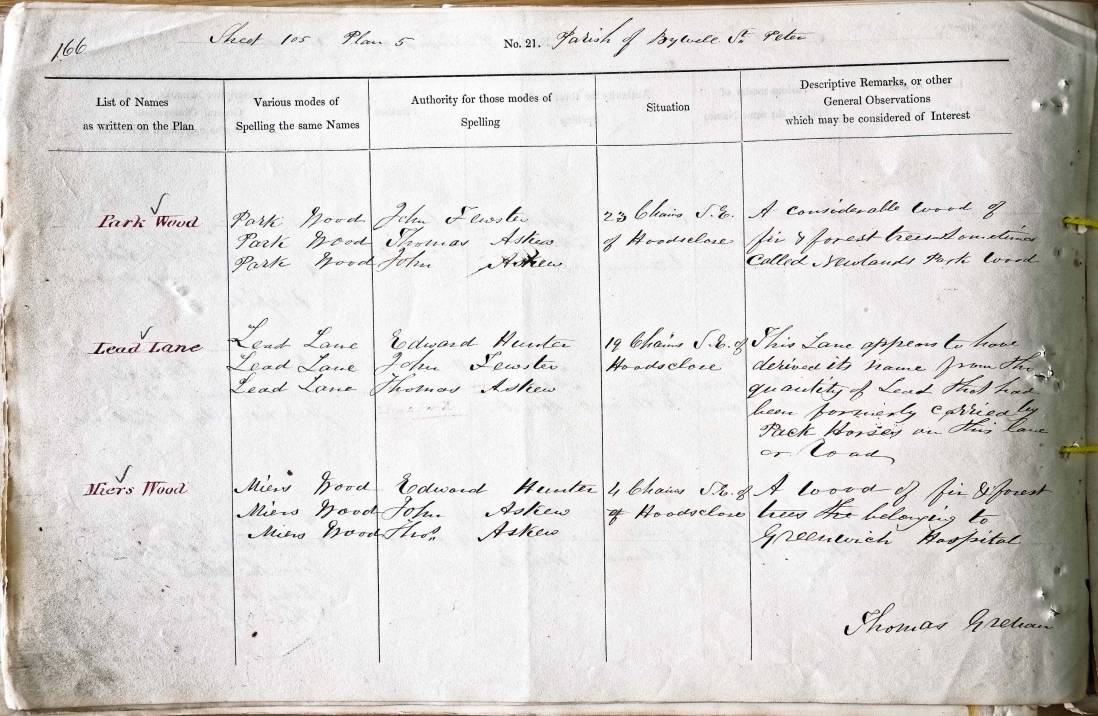 166 Sheet 105 Plan 5 No. 21. Parish of Bywell St. Peter
List of Names
as written on the Plan
Various modes of
Spelling the same Names
Authority for those modes of
Spelling
Situation
Descriptive Remarks, or other
General Observations
which may be considered of Interest
Park Wood
Park Wood John Fewster 23 Chains S.E. A considerable wood of
Park Wood Thomas Askew of Hoodsclose fir & forest trees Sometimes
Park Wood John Askew Called Newlands Park Wood
Lead Lane
Lead Lane Edward Hunter 19 Chains S.E. of This Lane appears to have
Lead Lane John Fewster Hoodsclose derived its name from the
Lead Lane Thomas Askew quantity of Lead that had
been formerly carried by
Pack Horses on this lane
or road
Miers Wood
Miers Wood Edward Hunter 4 Chains S.E. of A wood of fir & forest
Miers Wood John Askew of Hoodsclose trees the belonging to
Miers Wood Thos. Askew Greenwich Hospital
Thomas